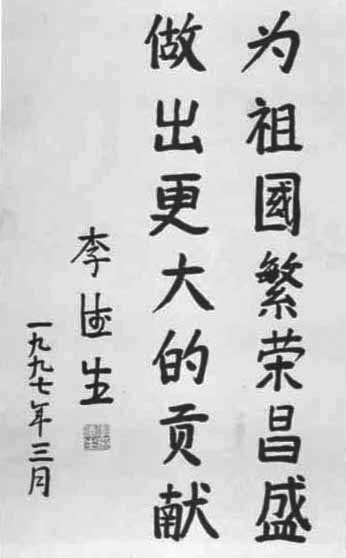 为祖國繁荣昌盛
做出更大的贡献
李德生
一九九七年三月